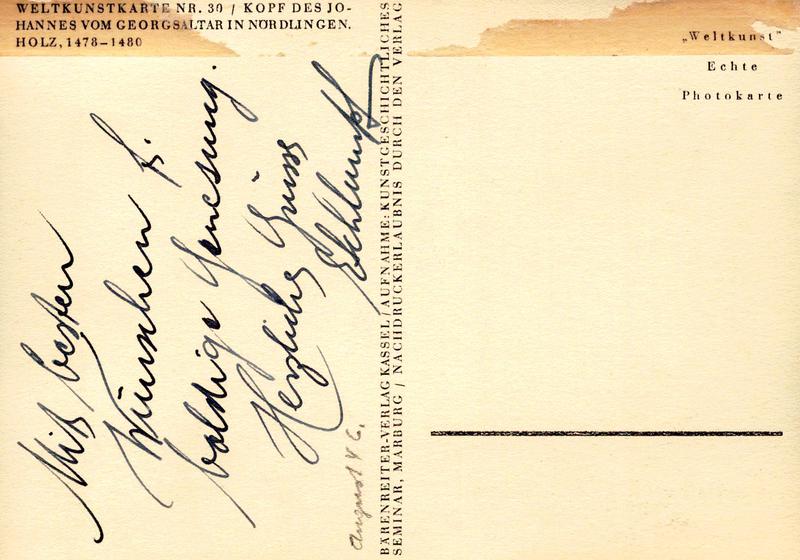 WELTKUNSTKARTE NR. 30 / KOPF DES JO-
HANNES VOM GEORGSALTAR IN NÖRDLINGEN.
HOLZ, 1478–1480
Mit besten
Wünschen f.
baldige Genesung.
Herzliche Grüsse
August 46.
BÄRENREITER-VERLAG KASSEL / AUFNAHME: KUNSTGESCHICHTLICHES
SEMINAR, MARBURG / NACHDRUCKERLAUBNIS DURCH DEN VERLAG
„Weltkunst"
Echte
Photokarte